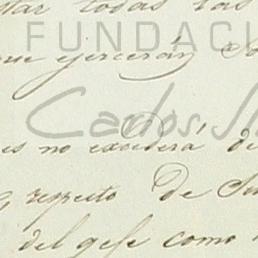 tar todas las
FUNDACI
que ejercerán
Carlos
es no excederá de
respecto De Su
del gefe como